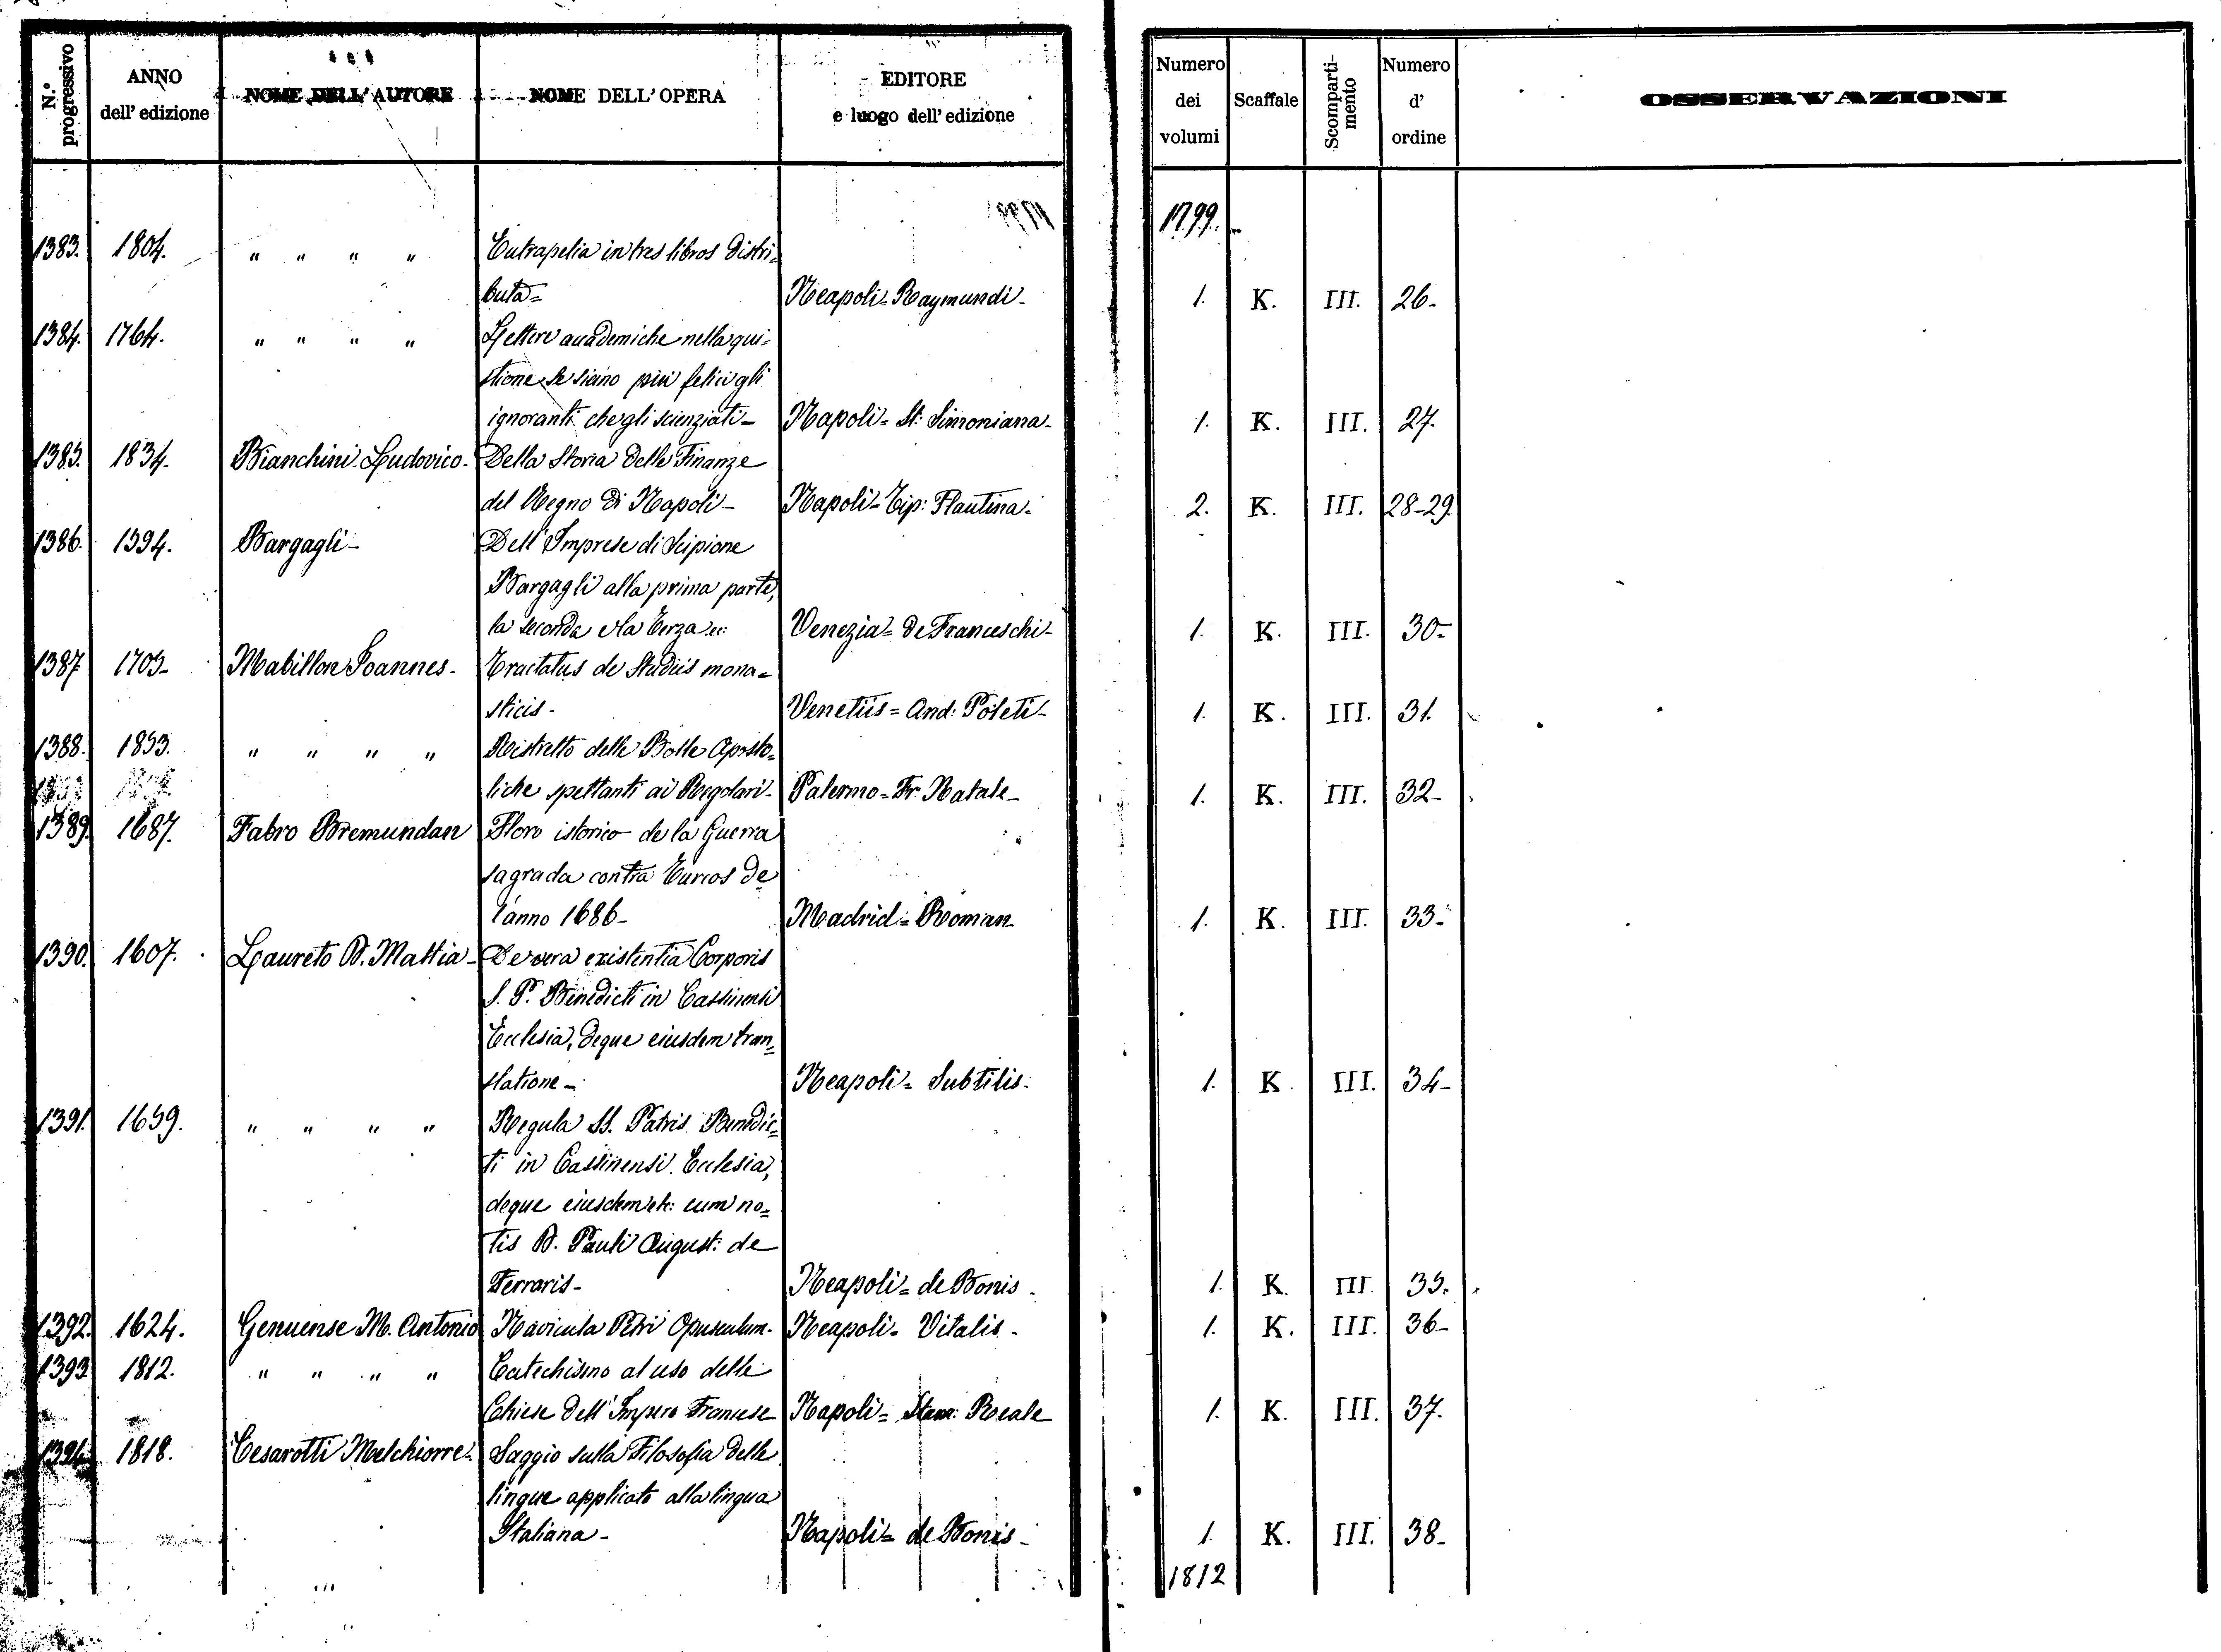 N.° progressivo | ANNO dell' edizione | NOME DELL'AUTORE | NOME DELL'OPERA | EDITORE e luogo dell'edizione | Numero dei volumi | Scaffale | Scomparti-mento | Numero d' ordine | OSSERVAZIONI
1799.
1383. 1804. " " " " Eutrapelia in tres libros distri=
buta= Neapoli= Raymundi- 1. K. III. 26-
1384. 1764. " " " " Lettere accademiche nella qui=
stione se siano più felici gli
ignoranti che gli scienziati- Napoli= St: Simoniana- 1. K. III. 27.
1385. 1834. Bianchini Ludovico- Della Storia delle Finanze
del Regno di Napoli- Napoli= Tip: Flautina- 2. K. III. 28-29.
1386. 1594. Bargagli- Dell'Imprese di Scipione
Bargagli alla prima parte,
la seconda e la terza ec: Venezia= de Franceschi- 1. K. III. 30-
1387 1705- Mabillon Joannes- Tractatus de Studiis mona=
sticis- Venetiis= And: Poleti- 1. K. III. 31.
1388. 1853. " " " " Ristretto delle Bolle Aposto=
liche spettanti ai Regolari- Palermo= Fr. Natale- 1. K. III. 32-
1389. 1687. Fabro Bremundan Floro istorico de la Guerra
sagrada contra Turcos de
l'anno 1686- Madrid= Roman 1. K. III. 33-
1390. 1607. Laureto D. Mattia- De vera existentia Corporis
S. P. Benedicti in Cassinensi
Ecclesia, deque eiusdem tran=
slatione- Neapoli= Subtilis- 1. K. III. 34-
1391. 1659. " " " " Regula SS. Patris Benedic=
ti in Cassinensi Ecclesia,
deque eiusdem etc: cum no=
tis D. Pauli August: de
Ferraris- Neapoli= de Bonis- 1. K. III. 35.
1392. 1624. Genuense M. Antonio Navicula Petri Opusculum- Neapoli= Vitalis- 1. K. III. 36-
1393. 1812. " " " " Catechismo al uso delle
Chiese dell'Impero Francese Napoli= Stam: Reale 1. K. III. 37.
1394. 1818. Cesarotti Melchiorre- Saggio sulla Filosofia delle
lingue applicato alla lingua
Italiana- Napoli= de Bonis- 1. K. III. 38-
1812